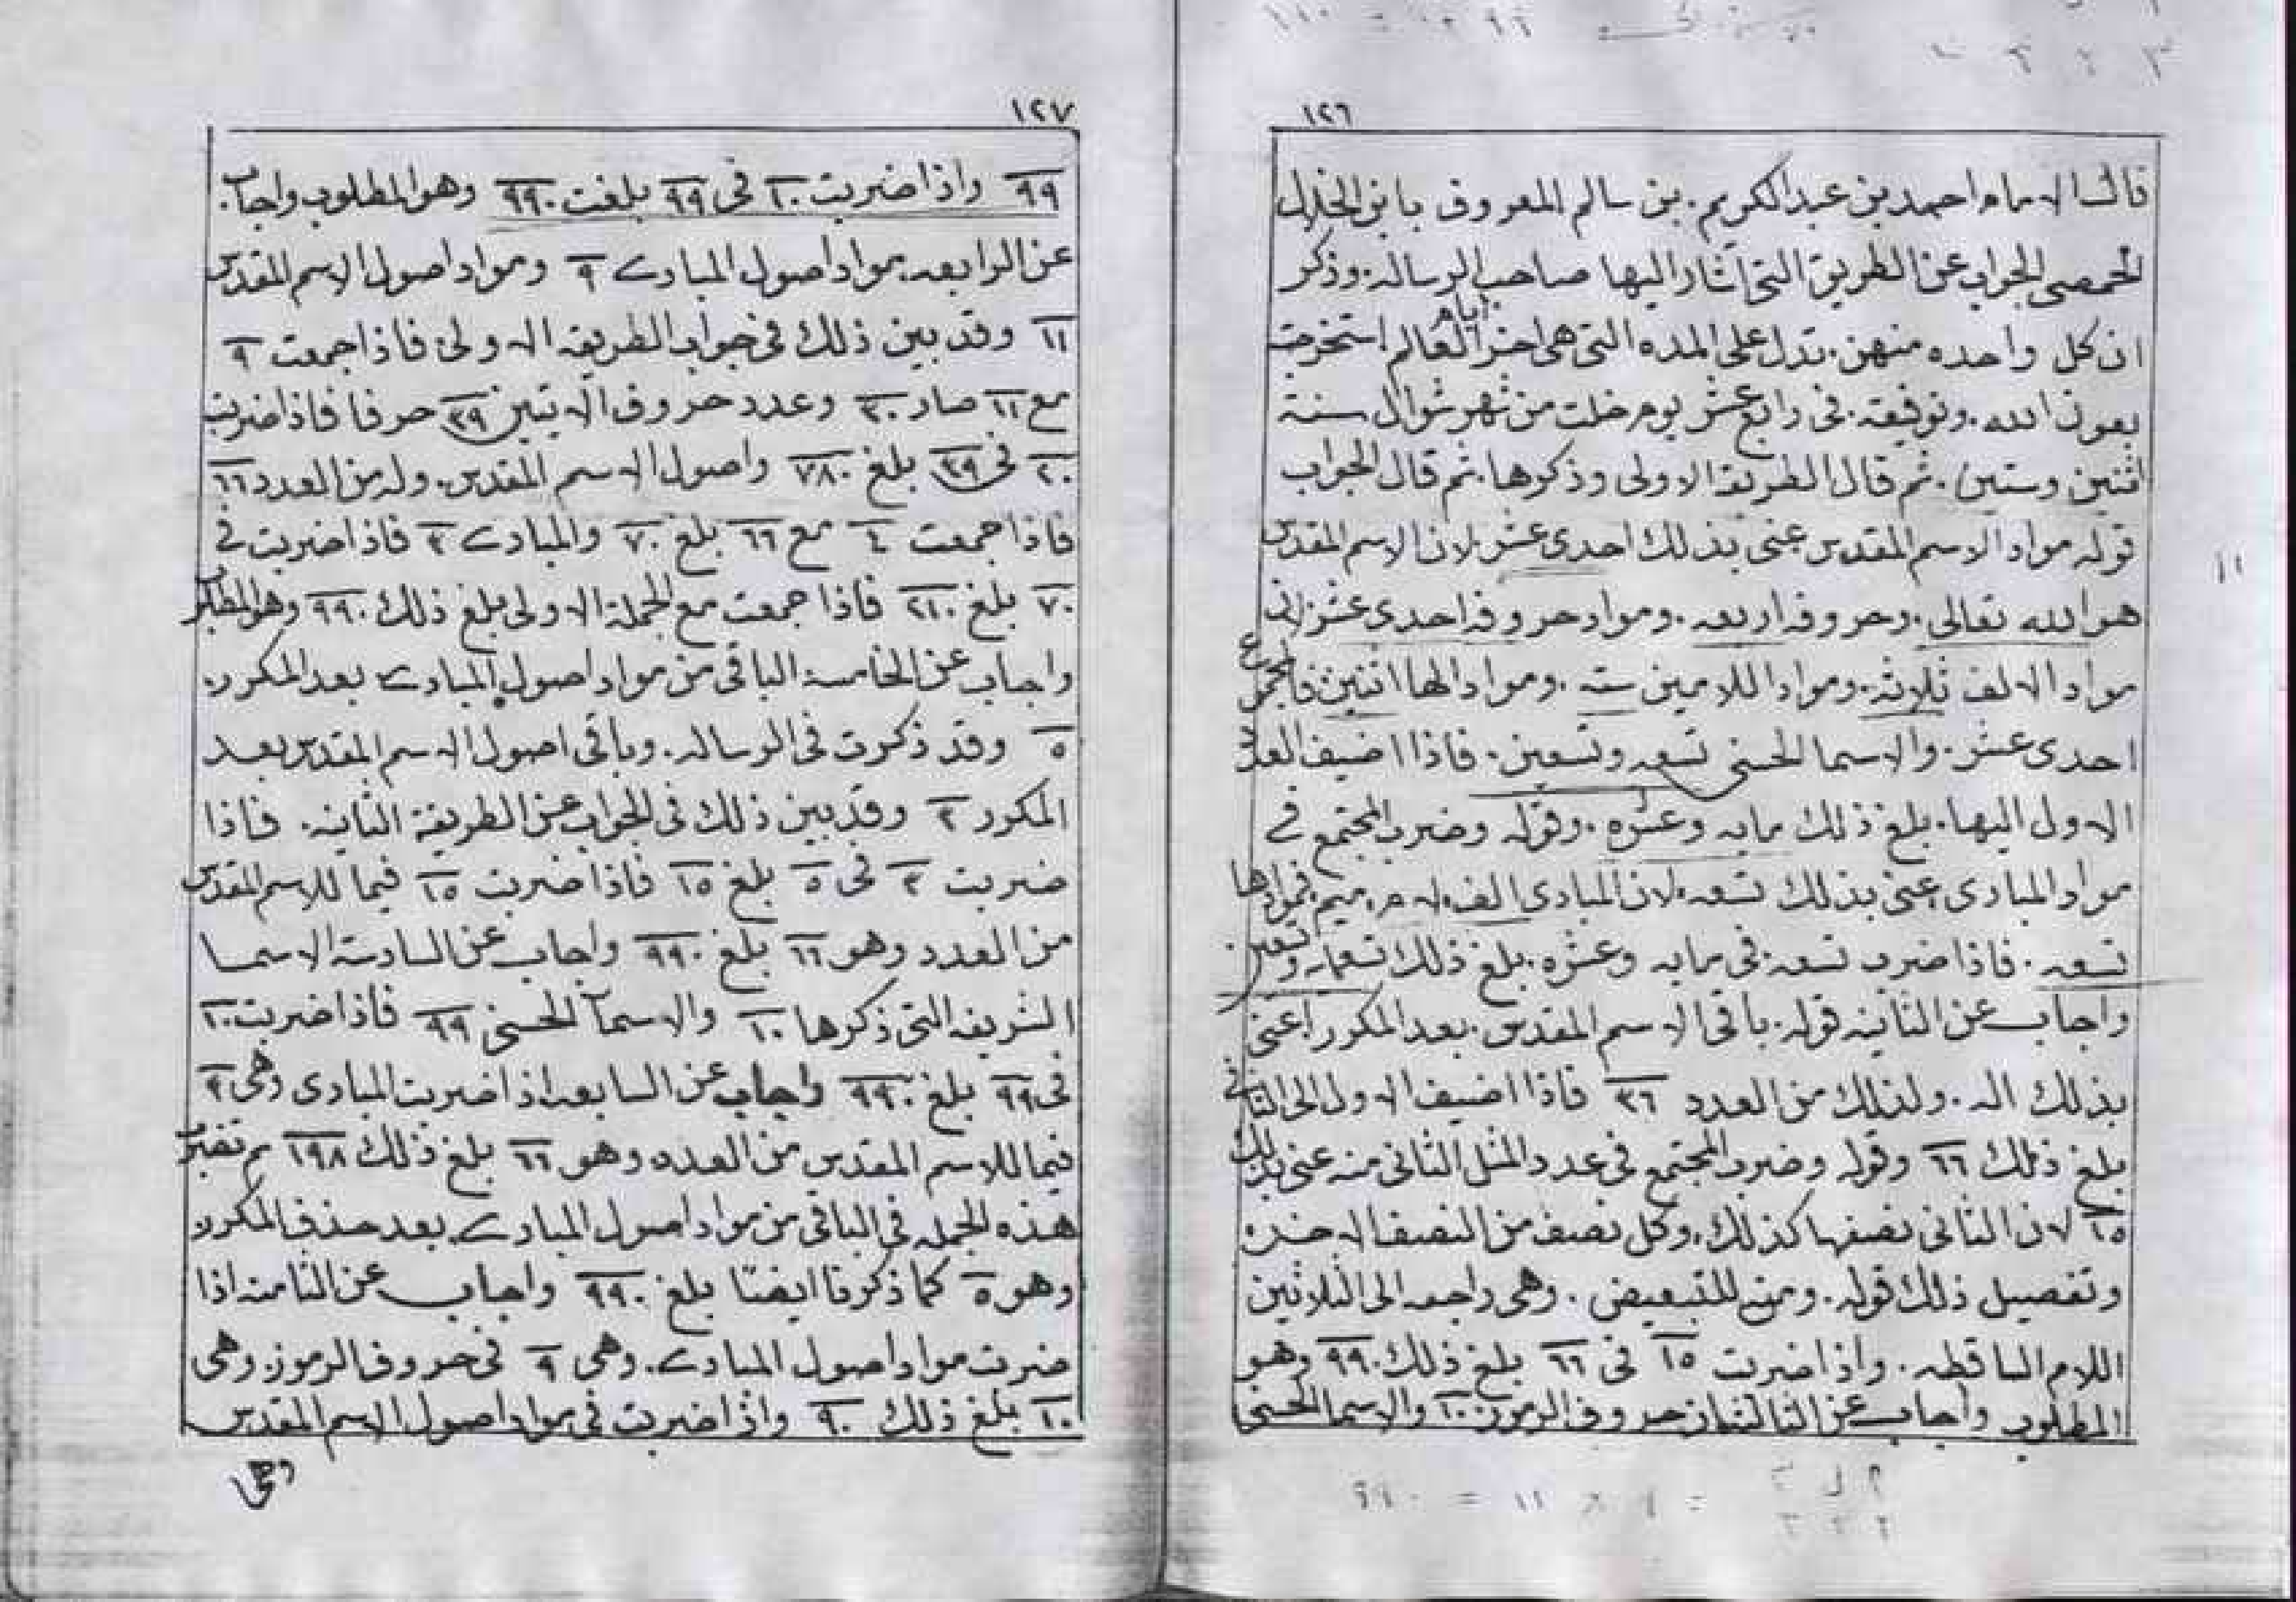 ١٢٦
قال الامام احمد بن عبد الكريم. بن سالم المعروف بابن الخلال
الحمصى الجواب عن الطريق التى اشار اليها صاحب الرساله. وذكر
ان كل واحده منهن. تدل على المده التى هى اخر ايام العالم استخرجت
بعون الله. وتوفيقه. فى رابع عشر يوم خلت من شهر شوال سنة
اثنين وستين. ثم قال الطريقة الاولى وذكرها. ثم قال الجواب
قوله مواد الاسم المقدس عنى بذلك احدى عشر. لان الاسم المقدس
هو الله تعالى. وحروفه اربعه. ومواد حروفه احدى عشر لان
مواد الالف ثلاثه. ومواد اللامين سته. ومواد الها اثنين فالمجموع
احدى عشر. والاسما الحسنى تسعه وتسعين. فاذا اضيف العدد
الاول اليها. بلغ ذلك مايه وعشره. وقوله وضرب المجتمع فى
مواد المبادى عنى بذلك تسعه. لان المبادى الف. لام. ميم. فموادها
تسعه. فاذا ضرب تسعه. فى مايه وعشره. بلغ ذلك تسعمايه وتسعين.
واجاب عن الثانيه قوله. باقى الاسم المقدس. بعد المكرر اعنى
بذلك اله. ولذلك من العدد ٣٦ فاذا اضيف الاول الى الثانى
بلغ ذلك ٦٦ وقوله وضرب المجتمع فى عدد المثل الثانى منه عنى بذلك
١٥ لان الثانى نصفها كذلك. وكل نصف من النصف الاخر.
وتفصيل ذلك قوله. ومنه للتبعيض. وهى راجعه الى الثلاثين
اللام الساقطه. واذا ضربت ١٥ فى ٦٦ بلغ ذلك ٩٩٠ وهو
المطلوب واجاب عن الثالثه بان حروف الرموز ١٠ والاسما الحسنى
٩٩٠ = ١١
١٢٧
٩٩ واذا ضربت ١٠ فى ٩٩ بلغت ٩٩٠ وهو المطلوب واجاب.
عن الرابعه بمواد اصول المبادى ٩ ومواد اصول الاسم المقدس
١١ وقد بين ذلك فى جواب الطريقه الاولى. فاذا جمعت ٩
مع ١١ صار ٢٠ وعدد حروف الايتين ٣٩ حرفا فاذا ضربت
٢٠ فى ٣٩ بلغ ٧٨٠ واصول الاسم المقدس. وله من العدد ٦٦
فاذا جمعت ٤ مع ٦٦ بلغ ٧٠ والمبادى ٣ فاذا ضربت فى
٧٠ بلغ ٢١٠ فاذا جمعت مع الجملة الاولى بلغ ذلك ٩٩٠ وهو المطلوب
واجاب عن الخامسة الباقى من مواد اصول المبادى بعد المكرر.
٥ وقد ذكرت فى الرساله. وباقى اصول الاسم المقدس بعد
المكرر ٣ وقد بين ذلك فى الجواب عن الطريقة الثانيه. فاذا
ضربت ٣ فى ٥ بلغ ١٥ فاذا ضربت ١٥ فيما للاسم المقدس
من العدد وهو ٦٦ بلغ ٩٩٠ واجاب عن السادسة الاسما
الشريفه التى ذكرها ١٠ والاسمآ الحسنى ٩٩ فاذا ضربت ١٠
فى ٩٩ بلغ ٩٩٠ واجاب عن السابعه اذا ضربت المبادى وهى ٣
فيما للاسم المقدس من العدد وهو ٦٦ بلغ ذلك ١٩٨ ثم تضرب
هذه الجمله فى الباقى من مواد اصول المبادى بعد حذف المكرر
وهو ٥ كما ذكرنا ايضا بلغ ٩٩٠ واجاب عن الثامنه اذا
ضربت مواد اصول المبادى. وهى ٩ فى حروف الرموز. وهى
١٠ بلغ ذلك ٩٠ واذا ضربت فى مواد اصول الاسم المقدس
وهى